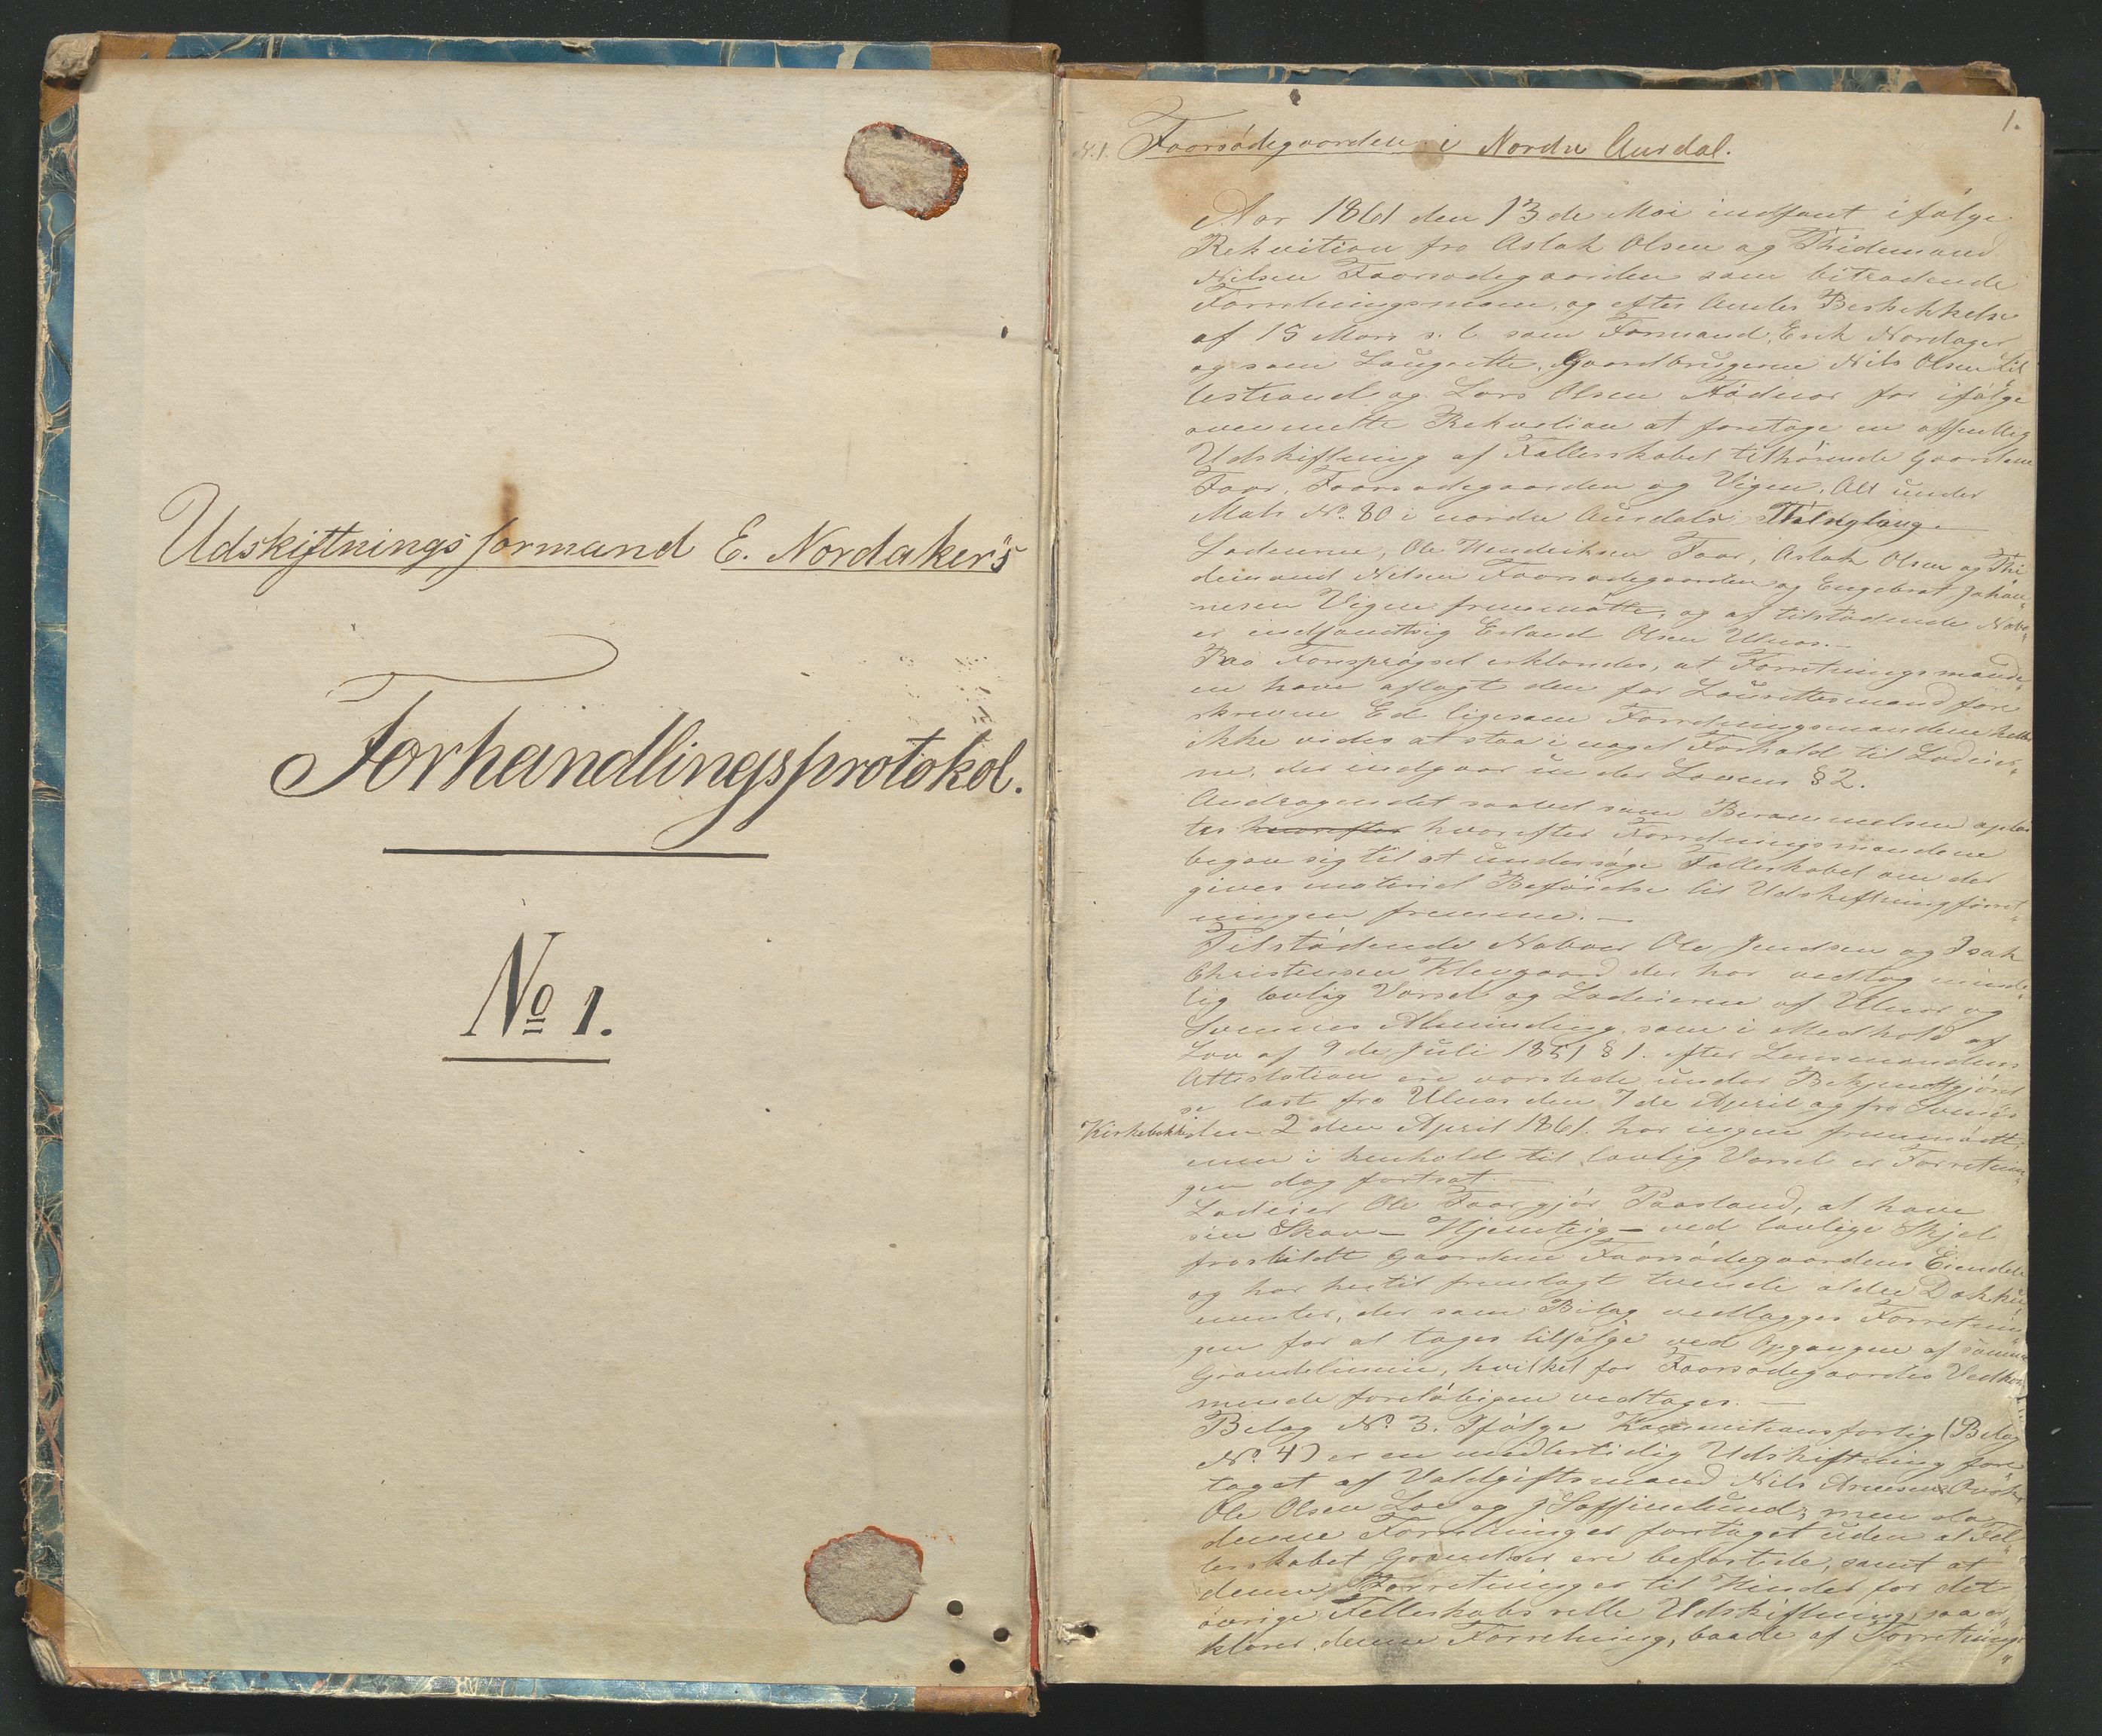 Udskiftningsformand E. Nordakers
Forhandlingsprotokol.
No 1.
1.
N. 1. Faorsödegaarden i Nordre Aurdal.
Aar 1861 den 13de Mai indfant ifølge
Rekvition fra Aslak Olsen og Thidemand
Nilsen Faarsodegaarden som bitradende
Forretningsmænn, og efter Amtes Beskikkelse
af 15 Mars s. l. som Formand, Erik Nordager
og som Laugrette, Gaardbrugerne Nils Olsen Lil
lestrand og Lars Olsen for ifølge
ovenmeldte Rekvistion at foretage en offentlig
Udskiftning af Fællesskabet tilhørende Gaardene
Faar, Faarsødegaarden og Vigen, Alt under
Matr No. 80 i nordre Aurdals Thinglaug.
Lodeierne, Ole Hendriksen Faar, Aslak Olsen og Thi
demand Nilsen Faarsødegaarden og Engebret Johan„
nesen Vigen fremmøtte, og af tilstødende Nabo„
er indfandt sig Erland Olsen Ulnes.
Paa Forespørgsel erklærdes, at Forretningsmænde„
ne have aflagt den for Laurettesmænd fore
skrevne Ed ligesom Forretningsmændene heller
ikke vides at staa i noget Forhold til Lodeier„
ne, der indgaar under Lovens § 2.
Andragendet saavel som Berammelsen oplæs
tes hvorefter hvorefter Forretningsmændene
begav sig til at undersøge Fælleskabet om der
gives materiel Beføielse til Udskiftningforret„
ningen fremme.
Tilstødende Naboer Ole Jendsen og Isak
Christensen Klevgaard der har vedtog mindt„
lig lovlig Varsel og Lodeierne af Ulnes og
Svennes Alminding som i Medhold af
Lov af 9de Juli 1851 § 1. efter Lensmandens
Attestation ere varslede under Bekjendtgjørel
se læst fra Ulnes den 7de April og fra Svenes
Kirkebakke den 2den April 1861. har ingen fremmødt,
men i henhold til lovlig Varsel er Forretnin„
gen dog fortsat.
Lodeier Ole Faar gjør Paastand, at have
sin Skov – Hjemteig – ved lovlige Skjel
fraskildt Gaardene Faarsødegaardens Eiendele
og har hertil fremlagt tvende ældre Dokku„
menter, der som Bilag vedlægges Forretnin„
gen for at tages tilfølge ved Opgangen af samme
Grændselinie, hvilket for Faarsødegaardes Vedkom„
mende foreløbigen vedtages.
Belag No. 3. Ifølge Kommitionsforlig (Belag
No. 4) er en midlertidig Udskiftning fore
taget af Voldgiftsmænd Nils Arnesen
Ole Olsen Loe og J men da
denne Forretninger foretaget uden at Fæl„
lesskabet Grændser ere befæstede, samt at
denne Forretning er til Hinder for det
øvrige Felleskabs relle Udskiftning, saa er„
klæres denne Forretning, baade af Forretnings„